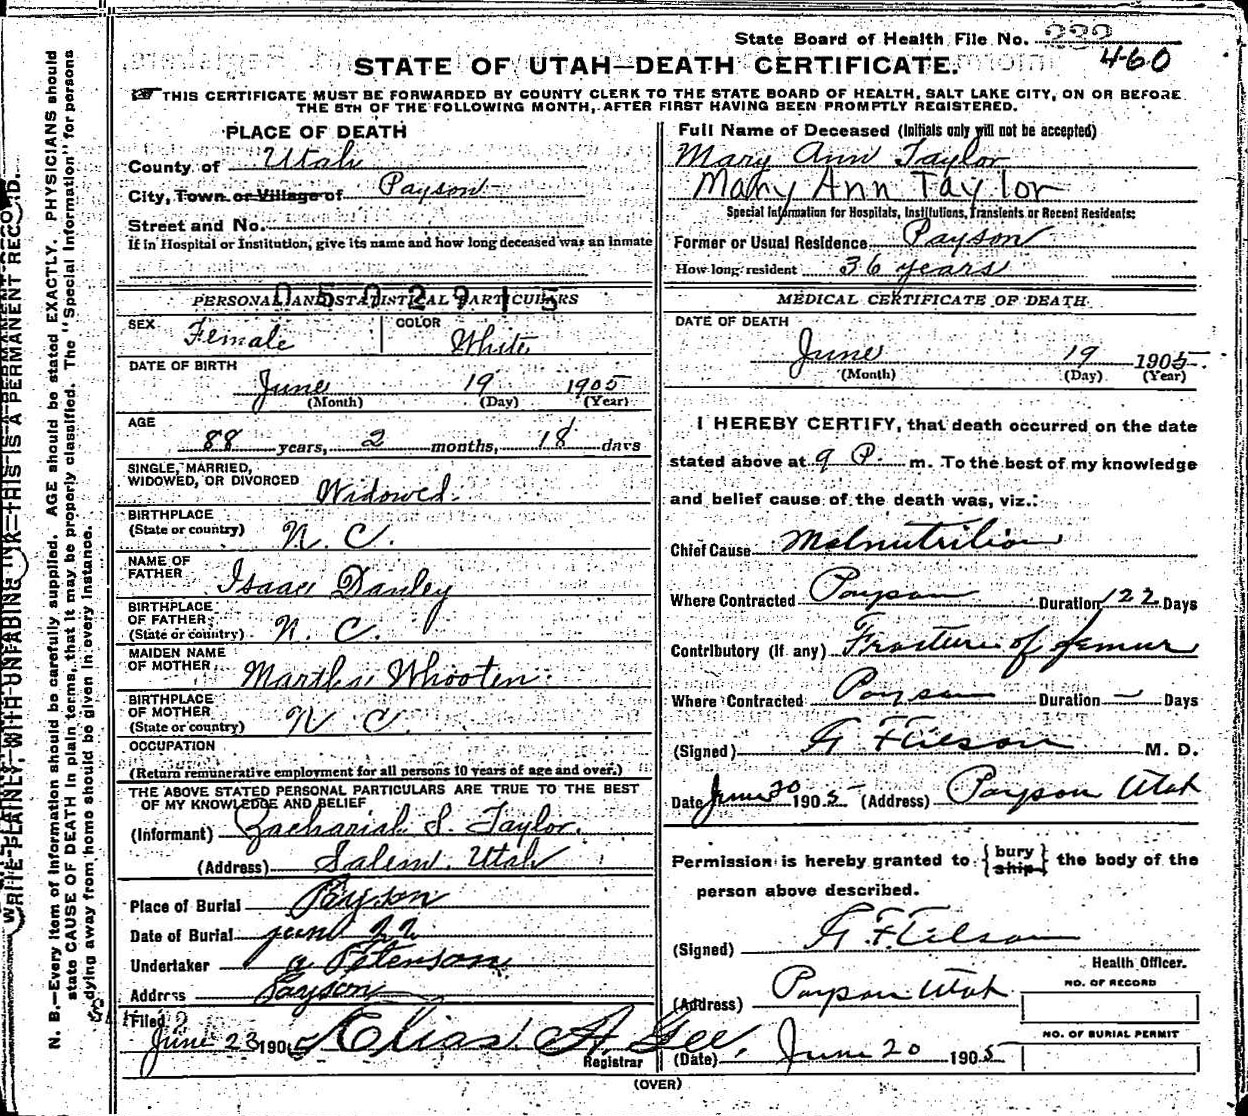 State Board of Health File No. 222
460
STATE OF UTAH—DEATH CERTIFICATE.
THIS CERTIFICATE MUST BE FORWARDED BY COUNTY CLERK TO THE STATE BOARD OF HEALTH, SALT LAKE CITY, ON OR BEFORE
THE 5TH OF THE FOLLOWING MONTH, AFTER FIRST HAVING BEEN PROMPTLY REGISTERED.
PLACE OF DEATH
County of Utah
City, Town or Village of Payson
Street and No.
If in Hospital or Institution, give its name and how long deceased was an inmate
PERSONAL AND STATISTICAL PARTICULARS
0502915
SEX Female COLOR White
DATE OF BIRTH
June 19 1905
(Month) (Day) (Year)
AGE
88 years, 2 months, 18 days
SINGLE, MARRIED,
WIDOWED, OR DIVORCED Widowed.
BIRTHPLACE
(State or country) N. C.
NAME OF
FATHER Isaac Danley
BIRTHPLACE
OF FATHER
(State or country) N. C.
MAIDEN NAME
OF MOTHER Martha Whooten
BIRTHPLACE
OF MOTHER
(State or country) N C.
OCCUPATION
(Return remunerative employment for all persons 10 years of age and over.)
THE ABOVE STATED PERSONAL PARTICULARS ARE TRUE TO THE BEST
OF MY KNOWLEDGE AND BELIEF
(Informant) Zachariah S. Taylor.
(Address) Salem, Utah
Place of Burial Payson
Date of Burial June 22
Undertaker a Peterson
Address Payson
Filed
June 23 1905 Elias A Gee.
Registrar
Full Name of Deceased (Initials only will not be accepted)
Mary Ann Taylor
Mary Ann Taylor
Special Information for Hospitals, Institutions, Transients or Recent Residents:
Former or Usual Residence Payson
How long resident 36 years
MEDICAL CERTIFICATE OF DEATH
DATE OF DEATH
June 19 1905
(Month) (Day) (Year)
I HEREBY CERTIFY, that death occurred on the date
stated above at 9 P. m. To the best of my knowledge
and belief cause of the death was, viz.:
Chief Cause Malnutrition
Where Contracted Payson Duration 122 Days
Contributory (if any) Fracture of femur
Where Contracted Payson Duration — Days
(Signed) M. D.
Date June 20 1905 (Address) Payson Utah
Permission is hereby granted to {bury ship} the body of the
person above described.
(Signed)
Health Officer.
(Address) Payson Utah
NO. OF RECORD
NO. OF BURIAL PERMIT
(Date) June 20 1905
(OVER)
WRITE PLAINLY, WITH UNFADING INK—THIS IS A PERMANENT RECORD.
N. B.—Every item of information should be carefully supplied. AGE should be stated EXACTLY. PHYSICIANS should
state CAUSE OF DEATH in plain terms, that it may be properly classified. The "Special Information" for persons
dying away from home should be given in every instance.